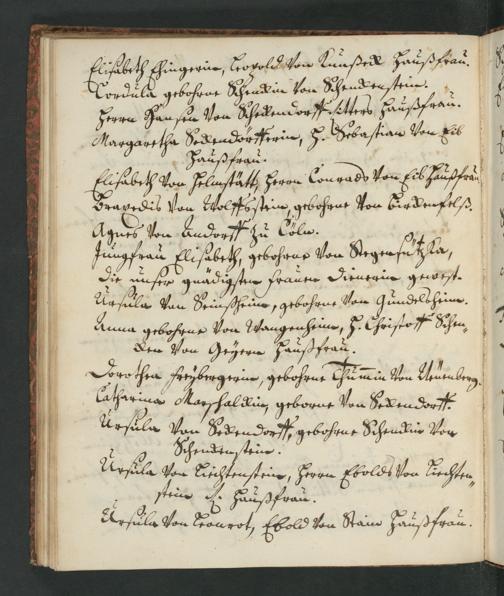 Elisabeth Ehingerin, Leopold von Kunsseck Haußfrau.
Cordula gebohrne Schenckin von Schenckenstein.
Herrn Hansen von Seckendorff Ritters Haußfrau.
Margaretha Seckendörfferin, H. Sebastian von Eib
Haußfrau.
Elisabeth von Helmstätt, Herrn Conradt von Eib Haußfrau
Praxedis von Wolffsstein, gebohrne von Birckenfelß.
Agnes von Andorff zu Cöln.
Jungfrau Elisabeth, gebohrne von
die unser gnädigsten Frauen Dienerin gewest.
Ursula von Seinßheim, gebohrne von Gundelsheim.
Anna gebohrne von Wangenheim, H. Christoff Schen-
cken von Geyern Haußfrau.
Dorothea Freybergerin, gebohrne Thummin von Neuenberg.
Catharina Marschalckin, geborne von Seckendorff.
Ursula von Seckendorff, gebohrne Schenckin von
Schenckenstein.
Ursula von Liechtenstein, Herrn Ebolds von Liechten-
stein Haußfrau.
Ursula von Leonrot, Ebold von Stain Haußfrau.